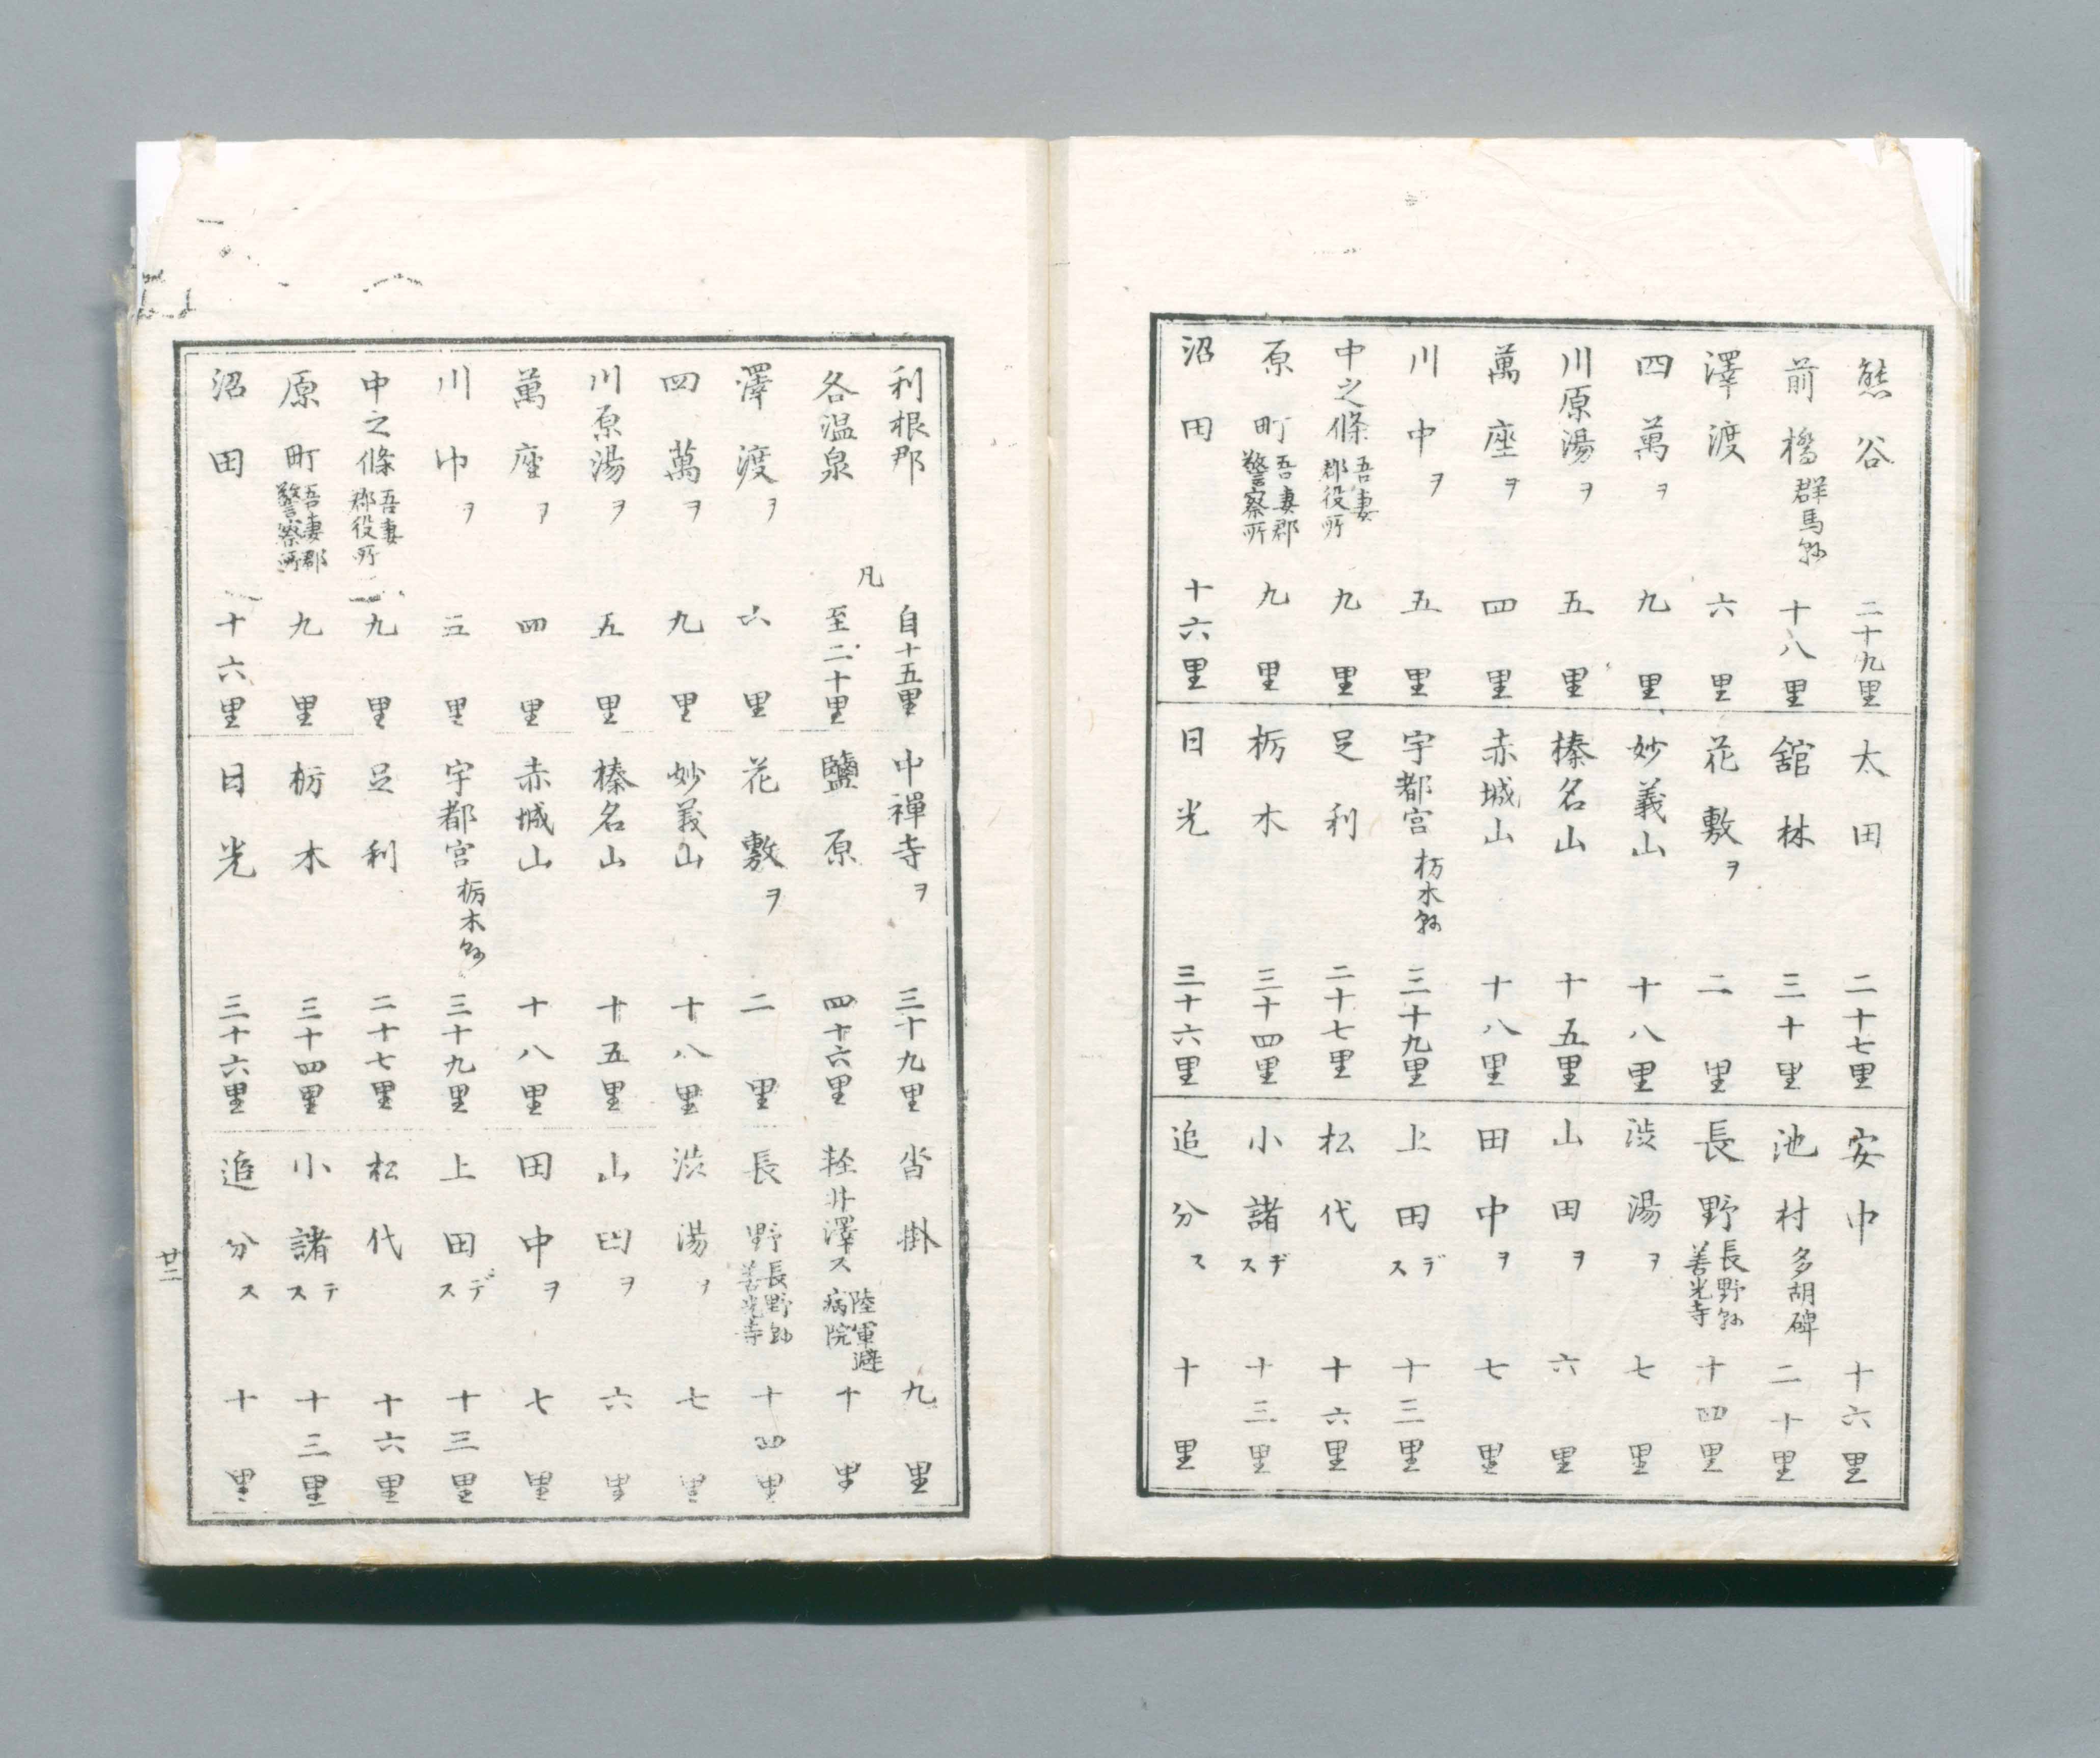 熊谷 二十九里
前橋 群馬縣 十八里
澤渡 六里
四萬ヲ 九里
川原湯ヲ 五里
萬座ヲ 四里
川中ヲ 五里
中之條 吾妻郡役所 九里
原町 吾妻郡警察所 九里
沼田 十六里
太田 二十七里
舘林 三十里
花敷ヲ 二里
妙義山 十八里
榛名山 十五里
赤城山 十八里
宇都宮 栃木縣 三十九里
足利 二十七里
栃木 三十四里
日光 三十六里
安中 十六里
池村 多胡碑 二十里
長野 長野縣善光寺 十四里
渋湯ヲ 七里
山田ヲ 六里
田中ヲ 七里
上田デス 十三里
松代 十六里
小諸デス 十三里
追分ス 十里
利根郡
各温泉 凡 自十五里至二十里
澤渡ヲ 六里
四萬ヲ 九里
川原湯ヲ 五里
萬座ヲ 四里
川中ヲ 五里
中之條 吾妻郡役所 九里
原町 吾妻郡警察所 九里
沼田 十六里
中禪寺ヲ 三十九里
鹽原 四十六里
花敷ヲ 二里
妙義山 十八里
榛名山 十五里
赤城山 十八里
宇都宮 栃木縣 三十九里
足利 二十七里
栃木 三十四里
日光 三十六里
沓掛 九里
輕井澤ス 陸軍避病院 十里
長野 長野縣善光寺 十四里
渋湯ヲ 七里
山田ヲ 六里
田中ヲ 七里
上田デス 十三里
松代 十六里
小諸テス 十三里
追分ス 十里
廿二